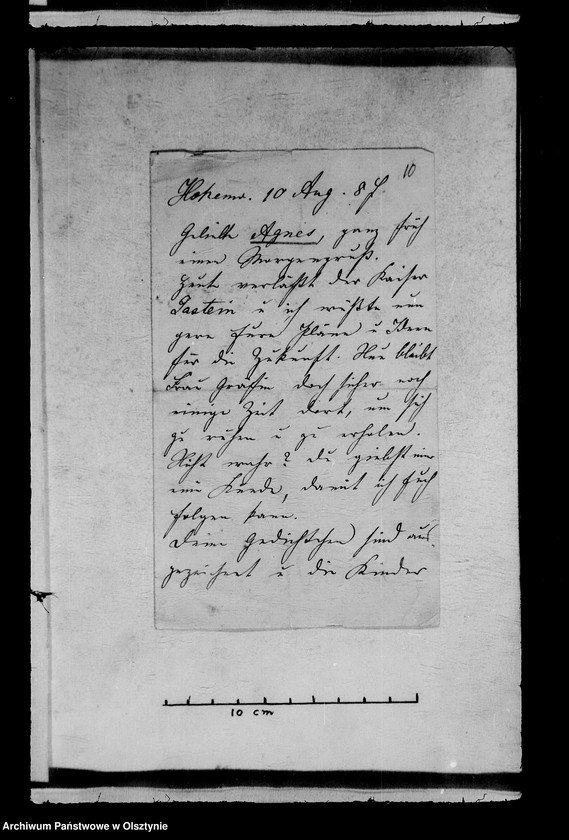 10
Hohenw. 10 Aug. 8 f.
Geliebte Agnes, ganz früh
einen Morgengruß.
Heute verläßt der Kaiser
Gastein u ich wüßte nun
gern Eure Pläne u Ideen
für die Zukunft. Nun bleibt
Frau Gräfin doch sicher noch
einige Zeit dort, um sich
zu ruhen u zu erholen.
Nicht wahr? Du giebst mir
eine, damit ich Euch
folgen kann.
Deine Gedichtchen sind aus-
gezeichnet u die Kinder
10 cm
Archiwum Państwowe w Olsztynie